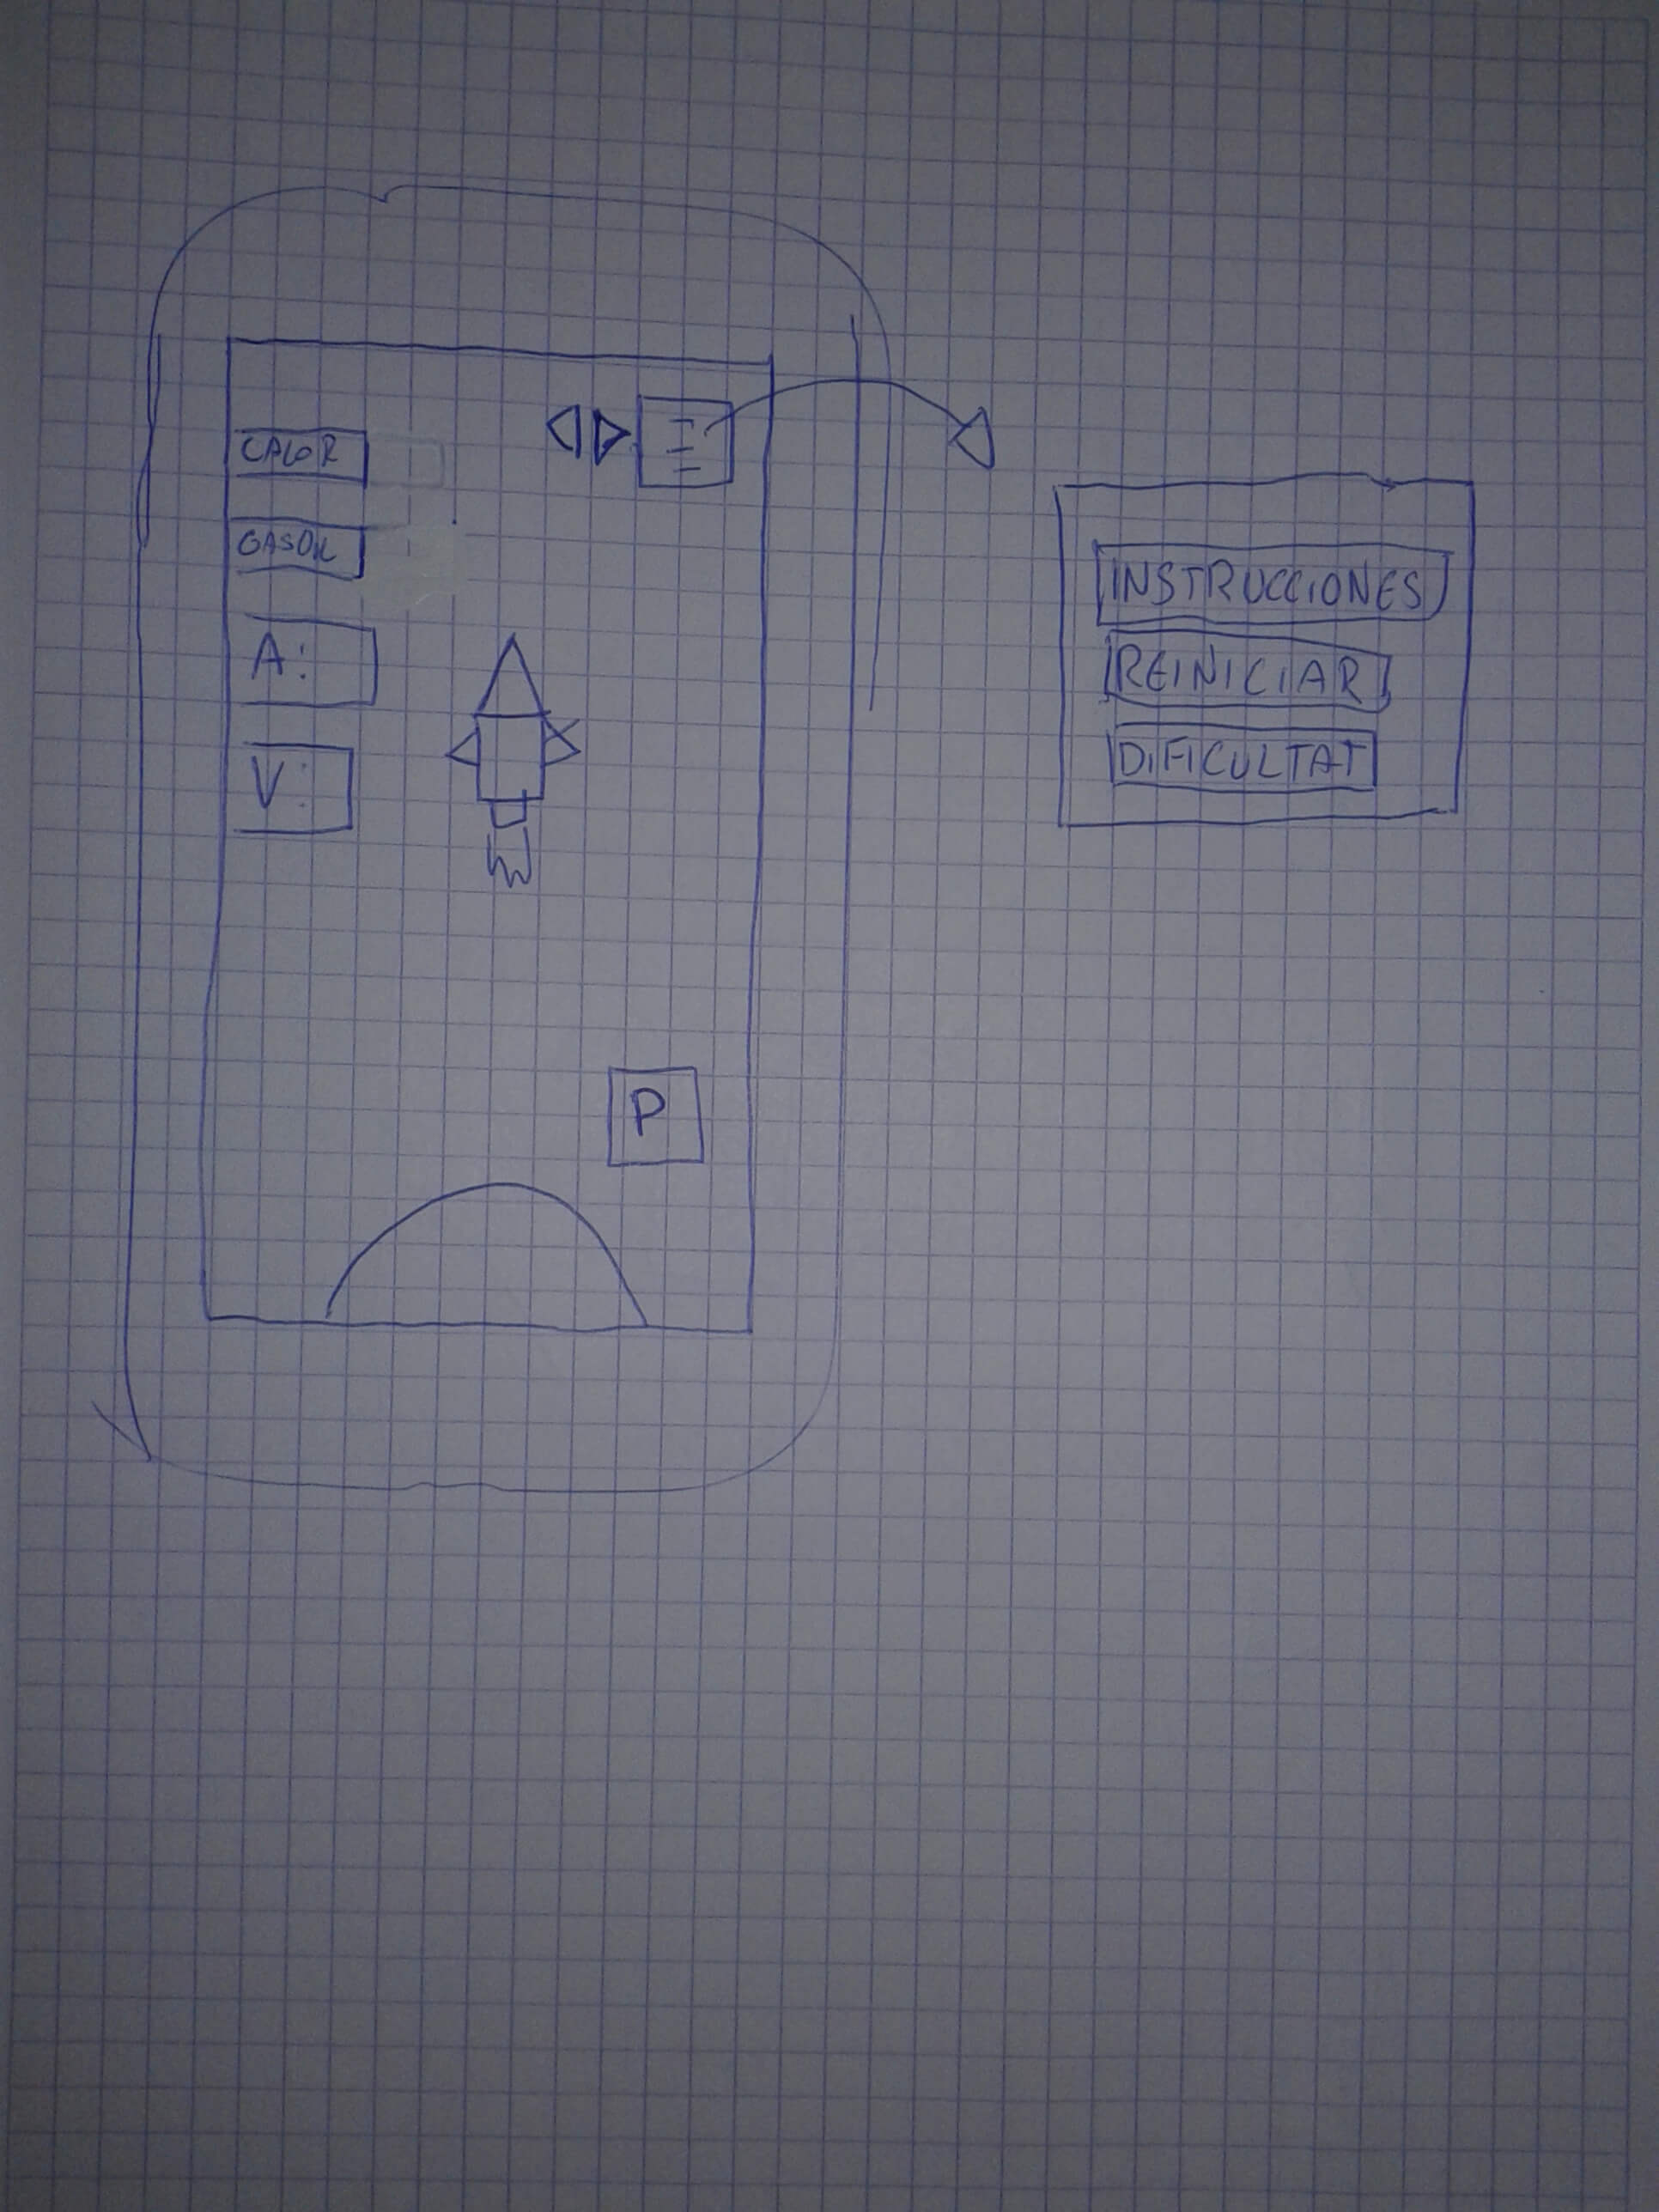 CALOR
GASOIL
A:
V:
P
INSTRUCCIONES
REINICIAR
DIFICULTAT